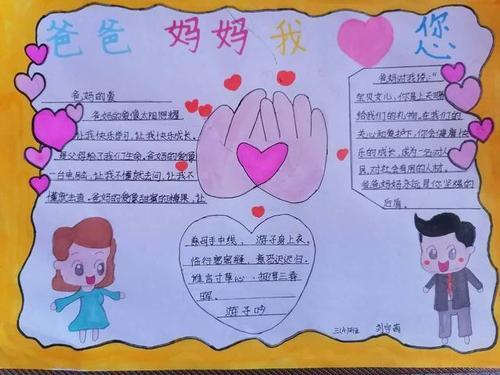 爸爸 妈妈 我 您
爸妈的爱
爸妈的爱像太阳照耀
让我快乐学习，让我快乐成长。
是父母给了我们生命，爸妈的爱像
一台电脑，让我不懂就去问，让我不
懂就去查，爸妈的爱像甜蜜的糖果，让
爸妈对我说：“
宝贝女儿，你是上天赐
给我们的礼物，在我们的
关心和爱护下，你会健康快
乐的成长，成为一名对人
民，对社会有用的人材，
爸爸妈妈永远是你坚强的
后盾。
慈母手中线，游子身上衣。
临行密密缝，意恐迟迟归。
谁言寸草心，报得三春
晖。
游子吟